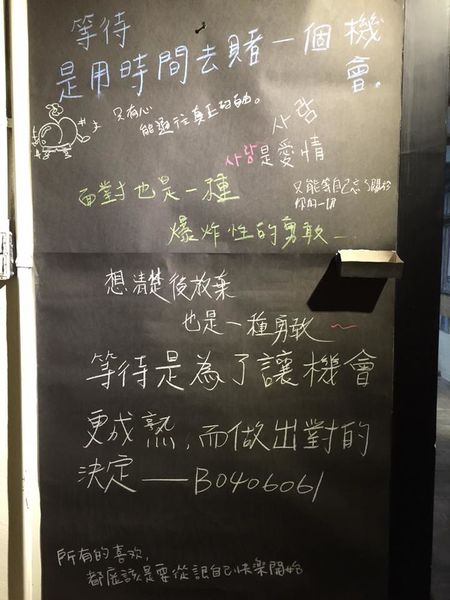 等待
是用時間去賭一個機
會。
只有心
能通往真正的自由。
사람
사랑是愛情
面對也是一種
只能等自己忘了關於
你的一切
爆炸性的勇敢—
想清楚後放棄
也是一種勇敢~
等待是為了讓機會
更成熟,而做出對的
決定——B0406061
所有的喜歡,
都應該是要從讓自己快樂開始